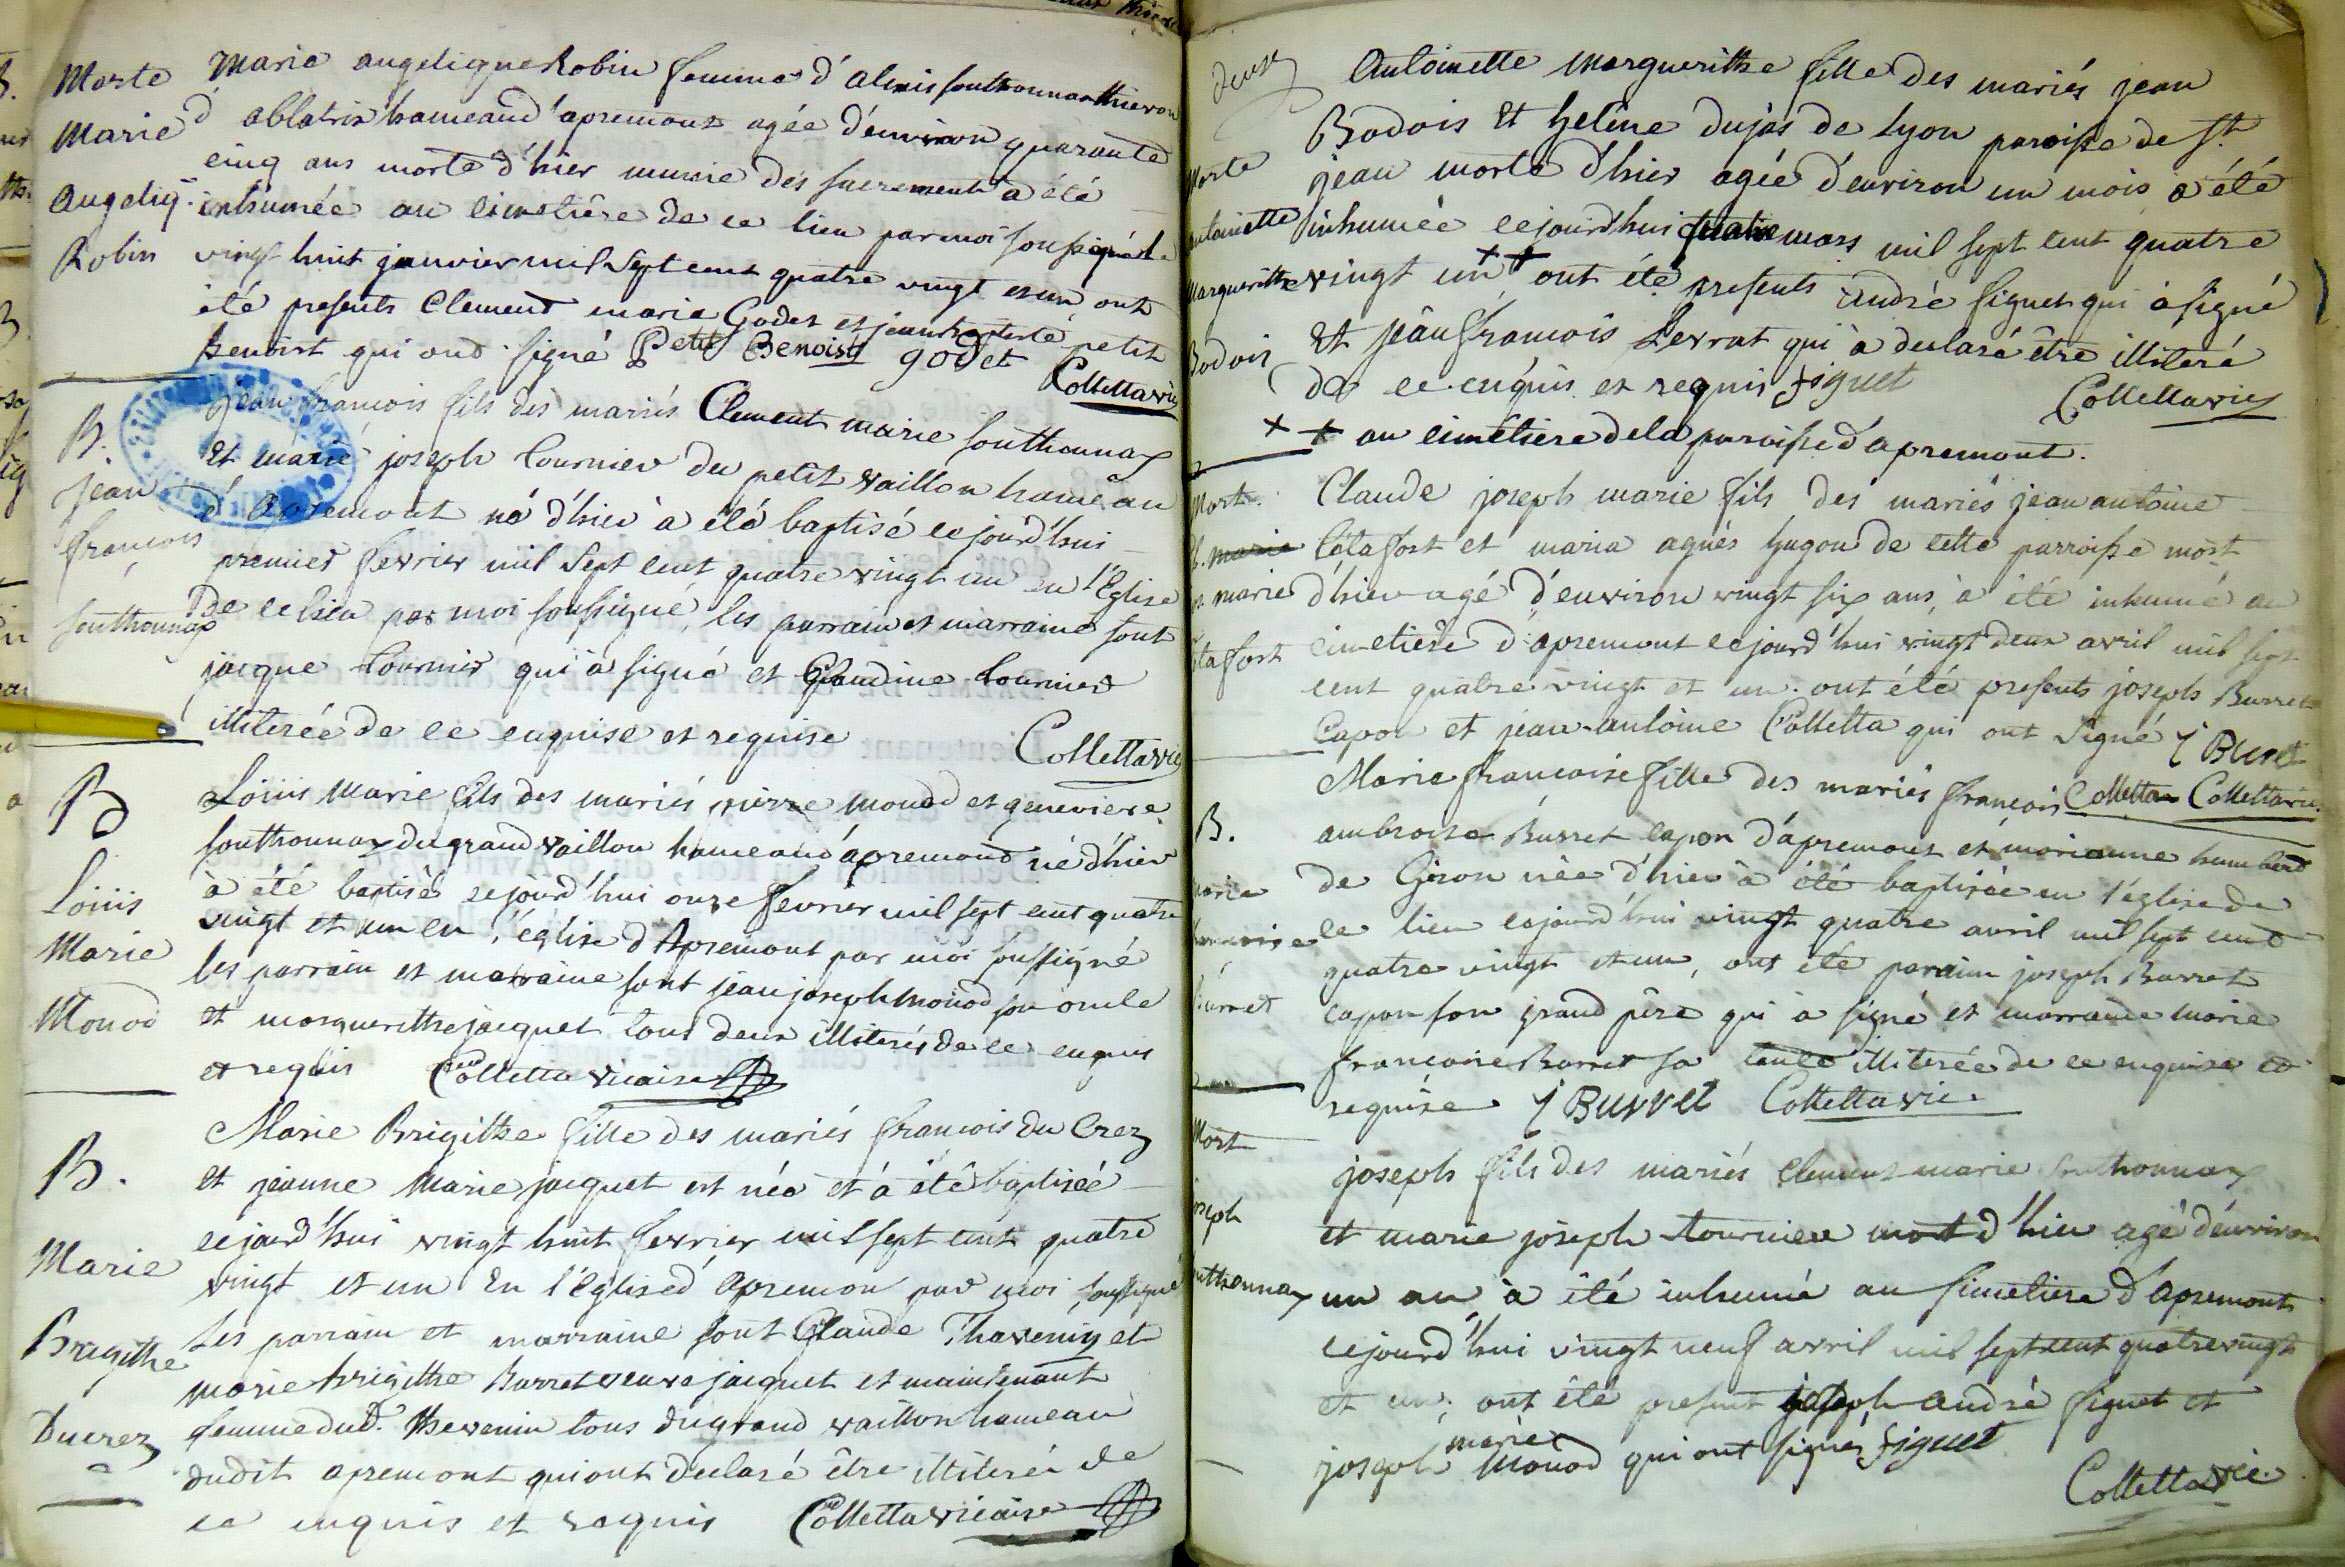 Morte
Marie
Angeliq.
Robin
Marie angelique Robin femme d'alexis southonnax thieron
d'ablatrix hameau d'apremont agée d'environ quarante
cinq ans morte d'hier munie des sacrements a été
inhumée au cimetiére de ce lieu par moi soussigné le
vingt huit janvier mil sept cent quatre vingt et un ont
été presents Clement marie Godet et jean baptiste petit
benoist qui ont signé Petit Benoist godet
Collettavic
B.
jean
françois
southonnax
jean françois fils des mariés Clement marie southonnax
et marie joseph tournier du petit vaillon hameau
d'apremont né d'hier à été baptisé cejourd'hui
premier fevrier mil sept cent quatre vingt un en l'Eglise
de ce lieu par moi soussigné, les parrain et marraine sont
jacque tournier qui à signé et Claudine tournier
illiterée de ce enquise et requise
Collettavic
B
Loüis
Marie
Monod
Loüis marie fils des mariés pierre monod et genevieve
southonnax du grand vaillon hameau d'apremont né d'hier
à été baptisé cejourd'hui onze fevrier mil sept cent quatre
vingt et un en l'église d'Apremont par moi soussigné
les parrain et marraine sont jean joseph monod son oncle
et margueritte jacquet tous deux illiterés de ce enquis
et requis Colletta vicaire
B.
Marie
Brigitte
Ducrez
Marie Brigitte fille des mariés françois du Crez
et jeanne Marie jacquet est née et à été baptisée
cejourd'hui vingt huit fevrier mil sept cent quatre
vingt et un En l'Eglise d'apremon par moi soussigné
Les parrain et marraine sont Claude Thavenin et
marie brigitte Burret veuve jacquet et maintenant
femme dud. thevenin tous du grand vaillon hameau
dudit apremont qui ont declaré être illiterés de
ce enquis et requis Colletta vicaire
deux
Morte
antoinette
Margueritte
Bodois
Antoinette Margueritte fille des mariés jean
Bodois Et heléne dujas de Lyon paroisse de St.
jean morte d'hier agée d'environ un mois a été
inhumée cejourd'hui quatre mars mil sept cent quatre
vingt un ++ ont été presents andré signet qui à signé
Et jean françois Levrat qui à declaré être illiteré
de ce enquis et requis signet
Collettavic
++ au cimetiere de la paroisse d'apremont.
Mort.
marie
marie
létafort
Claude joseph marie fils des mariés jean antoine
létafort et maria agnés hugon de cette parroisse mort
d'hier agé d'environ vingt six ans, à été inhumé au
cimetiére d'apremont cejourd'hui vingt deux avril mil sept
cent quatre vingt et un. ont été presents joseph Burret
Capon et jean-antoine Colletta qui ont signé J Buret
Colletta Collettavic.
B.
marie
francoise
Burret
Marie francoise fille des mariés françois
ambroise Burret capon d'apremont et marianne humbert
de Giron née d'hier à été baptisée en l'église de
ce lieu cejourd'hui vingt quatre avril mil sept cent
quatre vingt et un, ont été parrain joseph Burret
capon son grand pére qui à signé et marraine marie
francoise Burret sa tante illiterée de ce enquise et
requise J Burret Collettavic.
Mort
joseph
southonnax
joseph fils des mariés Clement marie southonnax
et marie joseph tournier mort d'hier agé d'environ
un an à été inhumé au simetiere d'apremont
cejourd'hui vingt neuf avril mil sept cent quatre vingt
et un; ont été present joseph andré signet et
joseph marie Monod qui ont signés signet
Collettavic.